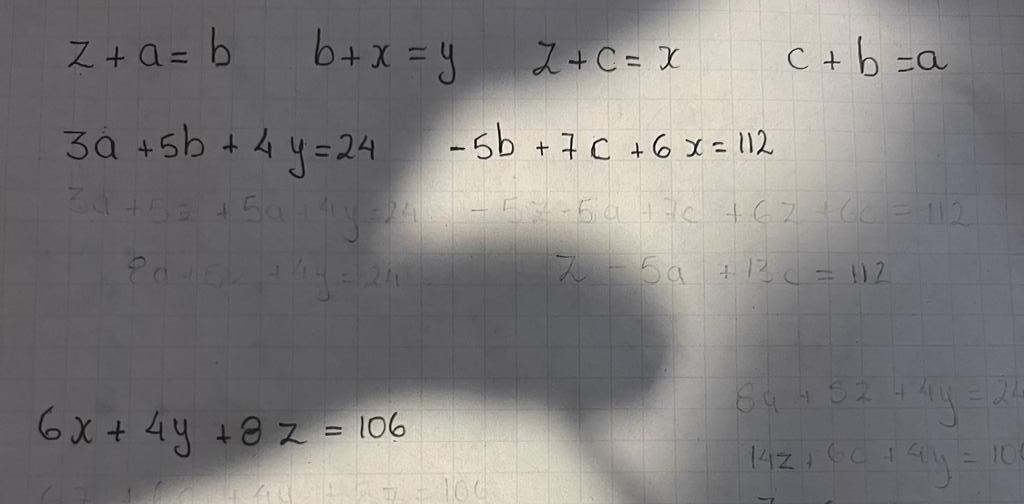 z + a = b b + x = y z + c = x c + b = a
3a + 5b + 4y = 24 -5b + 7c + 6x = 112
3a + 5z + 5a + 4y = 24 -5z - 5a + 7c + 6z + 6c = 112
8a + 5z + 4y = 24 z - 5a + 13c = 112
8a + 5z + 4y = 24
6x + 4y + 8z = 106
14z + 6c + 4y = 10
6z + 6c + 4y + 8z = 106